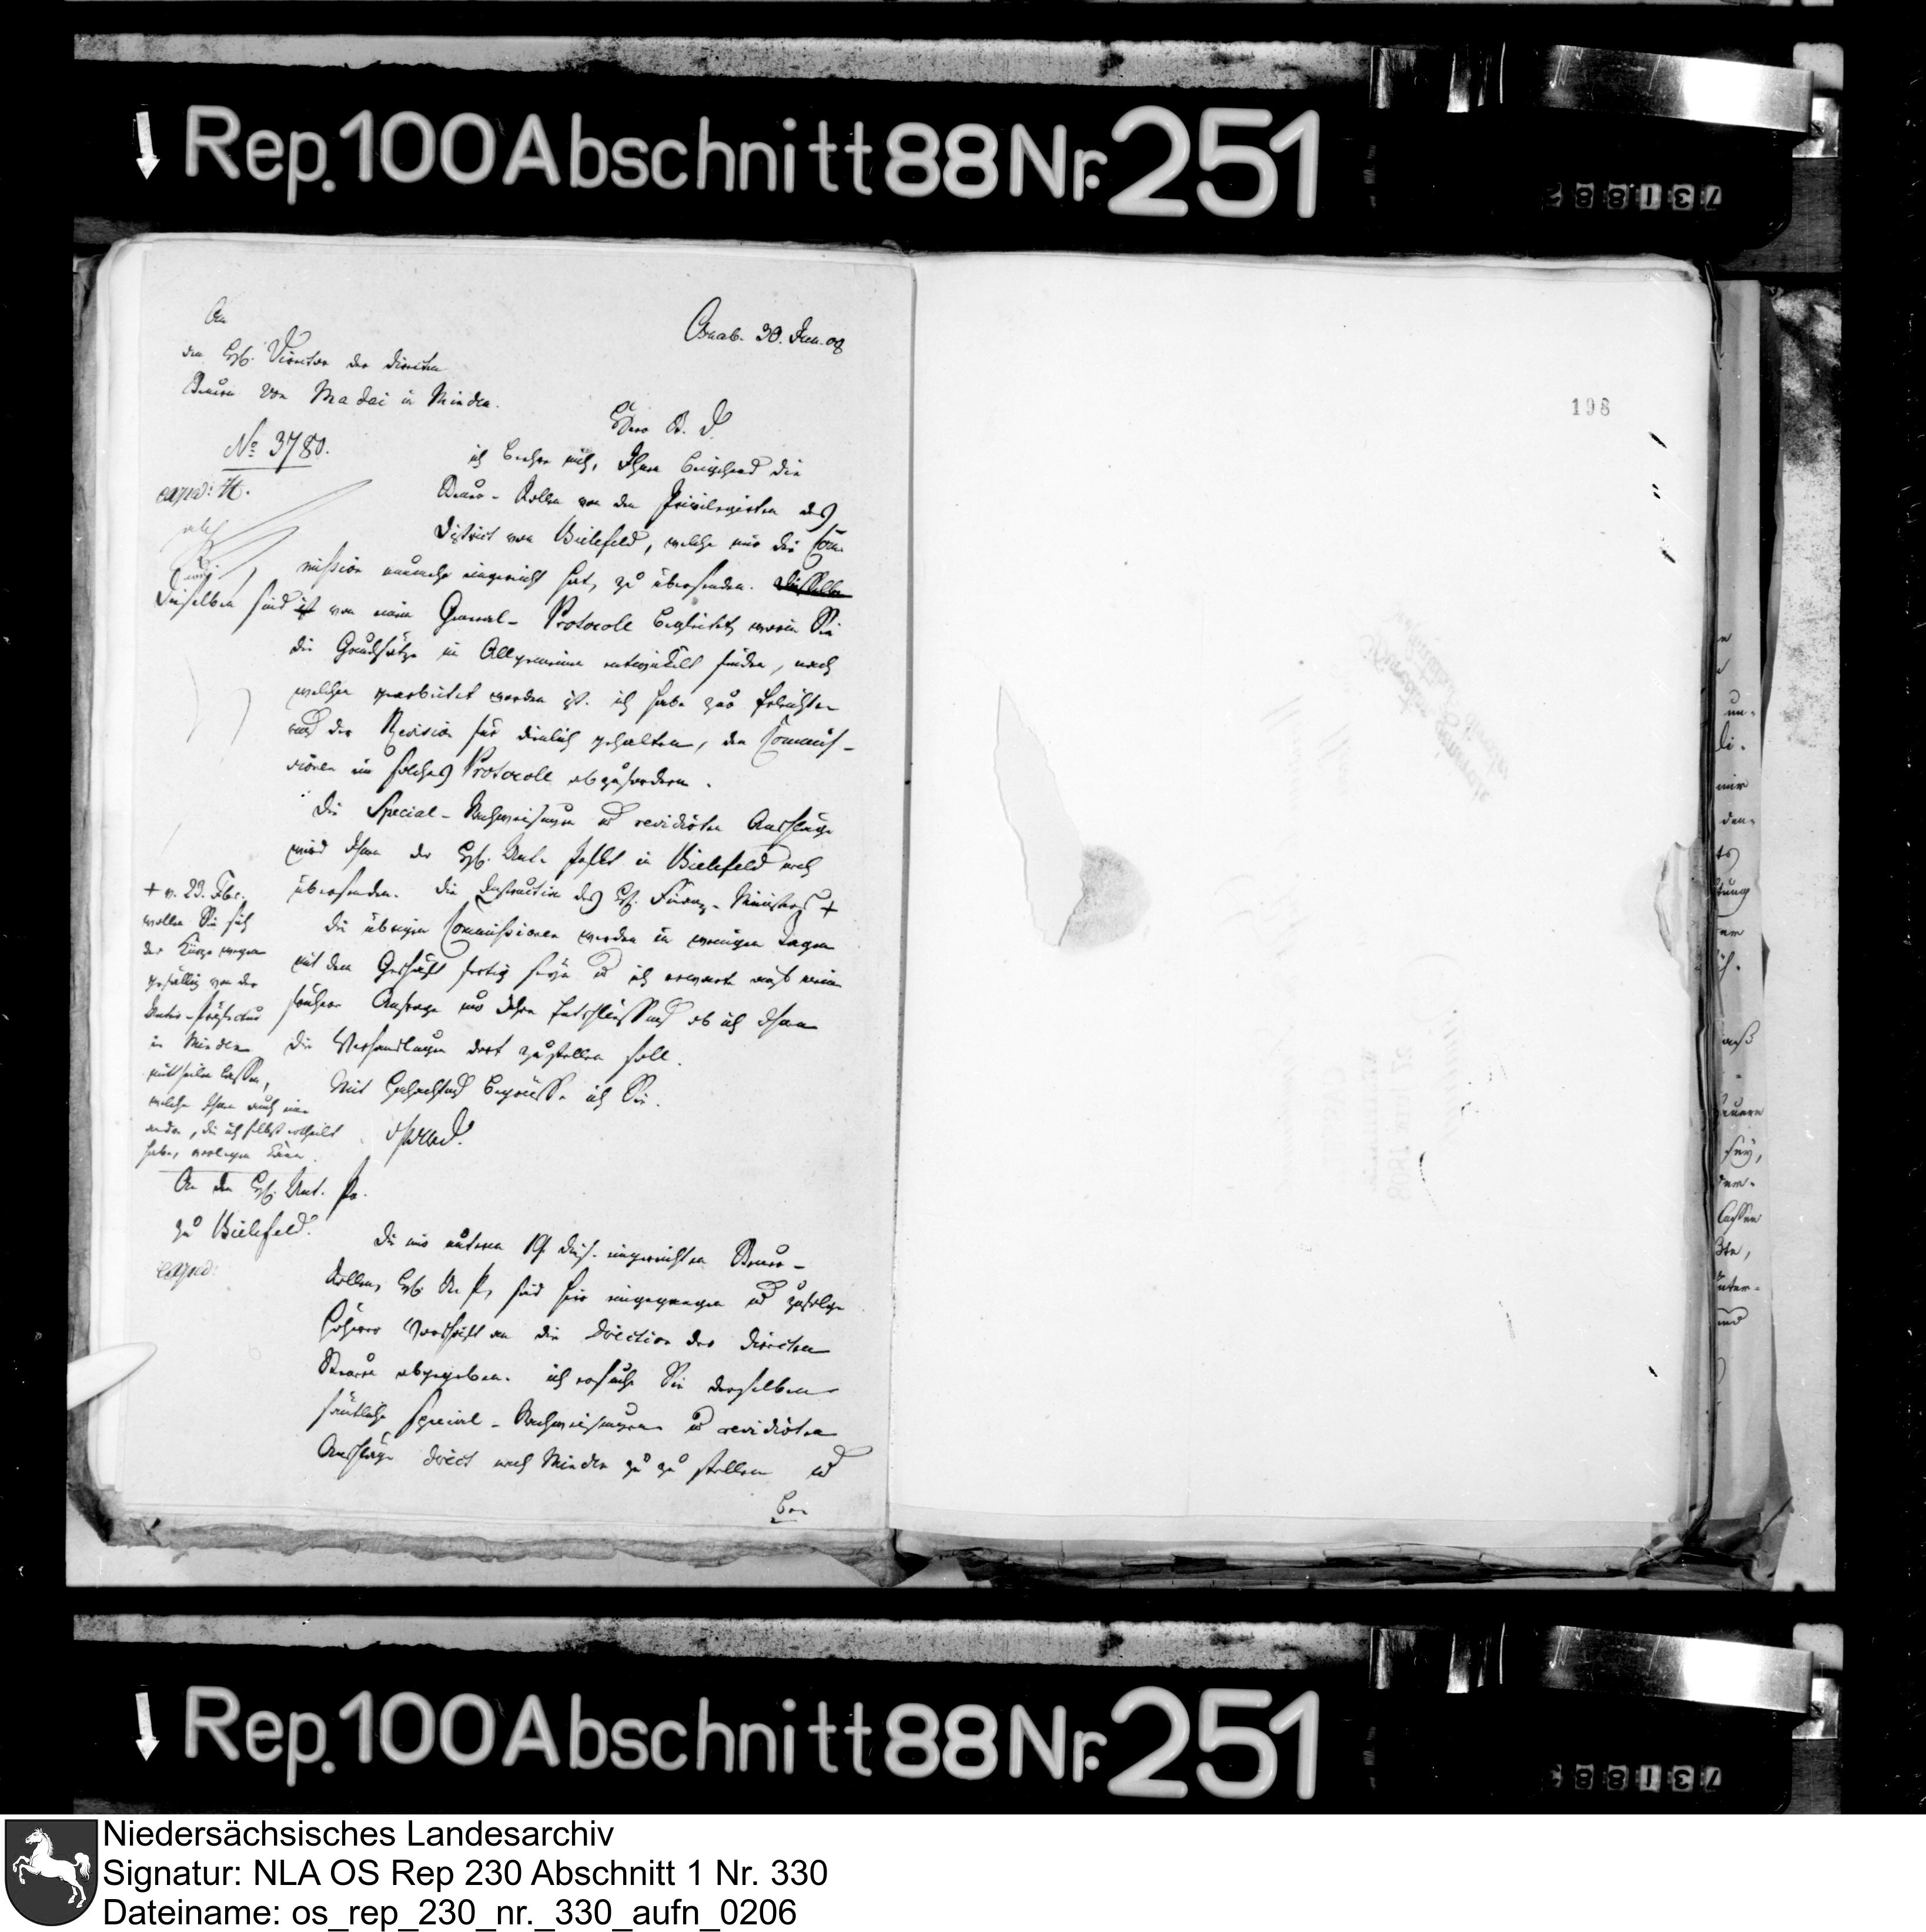 Rep. 100 Abschnitt 88 Nr. 251
An
den H. Director der directen
Steuern von Madai in Minden.
Osnab. 30. Jun. 08
No 3780.
exped: H.
Herr D. D.
ich beehre mich, Ihnen beigehend die
Steuer-Rollen von den Privilegirten des
District von Bielefeld, welche mir die Com-
mission nunmehr eingereicht hat, zu übersenden. Dieselbe
Dieselben sind ist von einem General-Protocoll begleitet, worin Sie
die Grundsätze im Allgemeinen entwickelt finden, nach
welchen gearbeitet worden ist. ich habe zur
und der Revision für dienlich gehalten, den Commis-
sionen ein solches Protocoll abzufordern.
Die Special-Nachweisungen u revidirten Anschläge
wird Ihnen der H. Unt. Präfekt in Bielefeld noch
übersenden. Die Instruction des H. Finanz-Ministers +
+ v. 23. Fbr.
wollen Sie sich
der Kürze wegen
gefällig von der
Unter-Präfectur
in Minden
mittheilen lassen,
welche Ihnen auch eine
andre, die ich selbst ertheilt
habe, vorlegen kann.
die übrigen Commissionen werden in wenigen Tagen
mit dem Geschäft fertig seyn u ich erwarte auf meine
frühere Anfrage nur Ihre Entschliessung ob ich Ihnen
die Verhandlungen dort zustellen soll.
Mit Hochachtung begrüsse ich Sie.
An den H. Unt. Pr.
zu Bielefeld.
exped:
Die mir unterm 19 dies. eingereichten Steuer-
Rollen, H. U. P., sind hier eingegangen u zufolge
höherer Vorschrift an die Direction der directen
Steuern abgegeben. ich ersuche Sie derselben
sämtliche Special-Nachweisungen u revidirten
Anschläge direct nach Minden zu zu stellen u
198
Rep. 100 Abschnitt 88 Nr. 251
Niedersächsisches Landesarchiv
Signatur: NLA OS Rep 230 Abschnitt 1 Nr. 330
Dateiname: os_rep_230_nr._330_aufn_0206